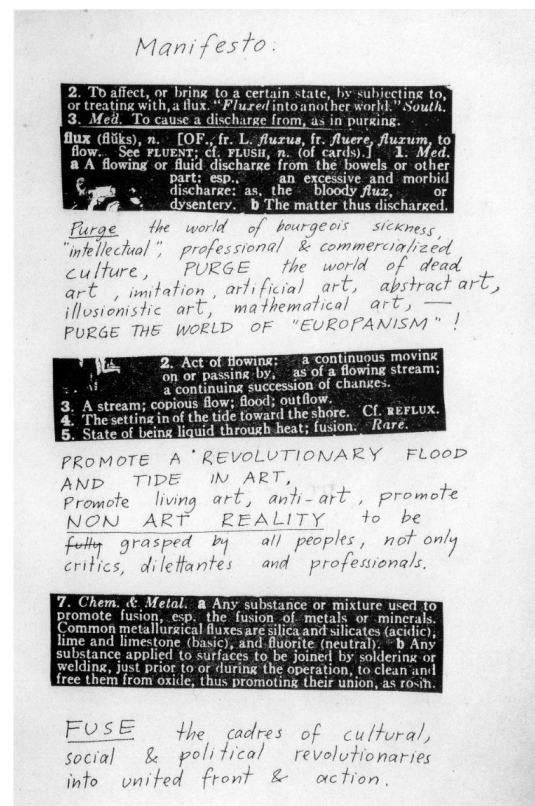 Manifesto:
2. To affect, or bring to a certain state, by subjecting to,
or treating with, a flux. "Fluxed into another world." South.
3. Med. To cause a discharge from, as in purging.
flux (flŭks), n. [OF., fr. L. fluxus, fr. fluere, fluxum, to
flow. See FLUENT; cf. FLUSH, n. (of cards).] 1. Med.
a A flowing or fluid discharge from the bowels or other
part; esp., an excessive and morbid
discharge: as, the bloody flux, or
dysentery. b The matter thus discharged.
Purge the world of bourgeois sickness,
"intellectual", professional & commercialized
culture, PURGE the world of dead
art, imitation, artificial art, abstract art,
illusionistic art, mathematical art, —
PURGE THE WORLD OF "EUROPANISM"!
2. Act of flowing: a continuous moving
on or passing by, as of a flowing stream;
a continuing succession of changes.
3. A stream; copious flow; flood; outflow.
4. The setting in of the tide toward the shore. Cf. REFLUX.
5. State of being liquid through heat; fusion. Rare.
PROMOTE A REVOLUTIONARY FLOOD
AND TIDE IN ART,
Promote living art, anti-art, promote
NON ART REALITY to be
fully grasped by all peoples, not only
critics, dilettantes and professionals.
7. Chem. & Metal. a Any substance or mixture used to
promote fusion, esp. the fusion of metals or minerals.
Common metallurgical fluxes are silica and silicates (acidic),
lime and limestone (basic), and fluorite (neutral). b Any
substance applied to surfaces to be joined by soldering or
welding, just prior to or during the operation, to clean and
free them from oxide, thus promoting their union, as rosin.
FUSE the cadres of cultural,
social & political revolutionaries
into united front & action.